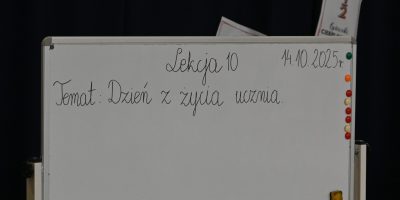 Lekcja 10 14.10.2025r.
Temat: Dzień z życia ucznia.